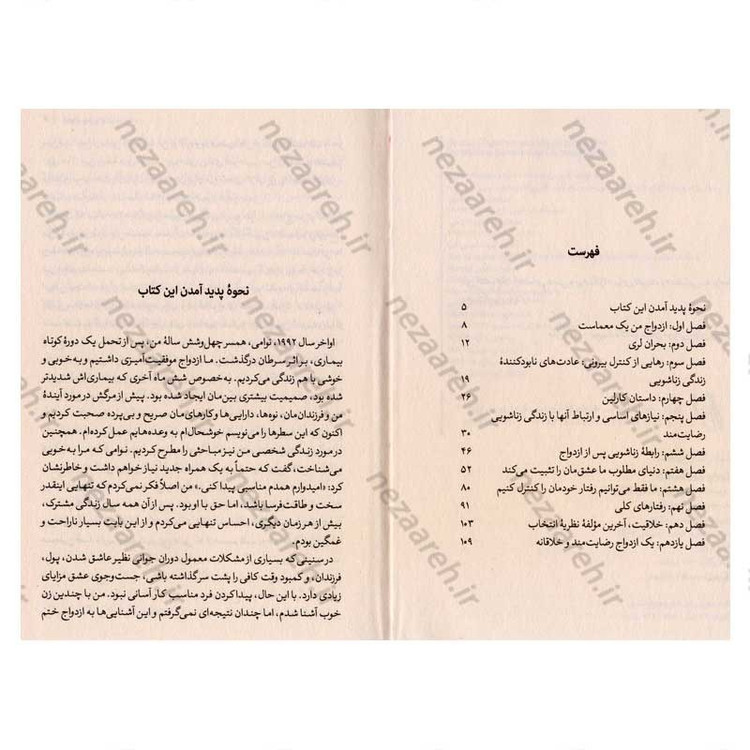 فهرست
نحوهٔ پدید آمدن این کتاب ۵
فصل اول: ازدواج من یک معماست ۸
فصل دوم: بحران لری ۱۲
فصل سوم: رهایی از کنترل بیرونی، عادت‌های نابودکنندهٔ
زندگی زناشویی ۱۹
فصل چهارم: داستان کارلین ۲۶
فصل پنجم: نیازهای اساسی و ارتباط آنها با زندگی زناشویی
رضایت‌مند ۳۰
فصل ششم: رابطهٔ زناشویی پس از ازدواج ۴۶
فصل هفتم: دنیای مطلوب ما عشق‌مان را تثبیت می‌کند ۵۲
فصل هشتم: ما فقط می‌توانیم رفتار خودمان را کنترل کنیم ۸۰
فصل نهم: رفتارهای کلی ۹۱
فصل دهم: خلاقیت، آخرین مؤلفهٔ نظریهٔ انتخاب ۱۰۳
فصل یازدهم: یک ازدواج رضایت‌مند و خلاقانه ۱۰۹
نحوهٔ پدید آمدن این کتاب
اواخر سال ۱۹۹۲، نوامی، همسر چهل‌وشش سالهٔ من، پس از تحمل یک دورهٔ کوتاه
بیماری، بر اثر سرطان درگذشت. ما ازدواج موفقیت‌آمیزی داشتیم و به‌خوبی و
خوشی با هم زندگی می‌کردیم. به‌خصوص شش ماه آخری که بیماری‌اش شدیدتر
شده بود، صمیمیت بیشتری بین‌مان ایجاد شده بود. پیش از مرگش در مورد آیندهٔ
من و فرزندان‌مان، نوه‌ها، دارایی‌ها و کارهای‌مان صریح و بی‌پرده صحبت کردیم و
اکنون که این سطرها را می‌نویسم خوشحال‌ام به وعده‌هایم عمل کرده‌ام. همچنین
در مورد زندگی شخصی من نیز مباحثی را مطرح کردیم. نوامی که مرا به‌خوبی
می‌شناخت، گفت که حتماً به یک همراه جدید نیاز خواهم داشت و خاطرنشان
کرد: «امیدوارم همدم مناسبی پیدا کنی.» من اصلاً فکر نمی‌کردم که تنهایی اینقدر
سخت و طاقت‌فرسا باشد، اما حق با او بود. پس از آن همه سال زندگی مشترک،
بیش از هر زمان دیگری، احساس تنهایی می‌کردم و از این بابت بسیار ناراحت و
غمگین بودم.
در سنینی که بسیاری از مشکلات معمول دوران جوانی نظیر عاشق شدن، پول،
فرزندان، و کمبود وقت کافی را پشت سر گذاشته باشی، جست‌وجوی عشق مزایای
زیادی دارد. با این حال، پیدا کردن فرد مناسب کار آسانی نبود. من با چندین زن
خوب آشنا شدم، اما چندان نتیجه‌ای نمی‌گرفتم و این آشنایی‌ها به ازدواج ختم
nezaareh.ir
nezaareh.ir
nezaareh.ir
nezaareh.ir
nezaareh.ir
nezaareh.ir
nezaareh.ir
nezaareh.ir
nezaareh.ir